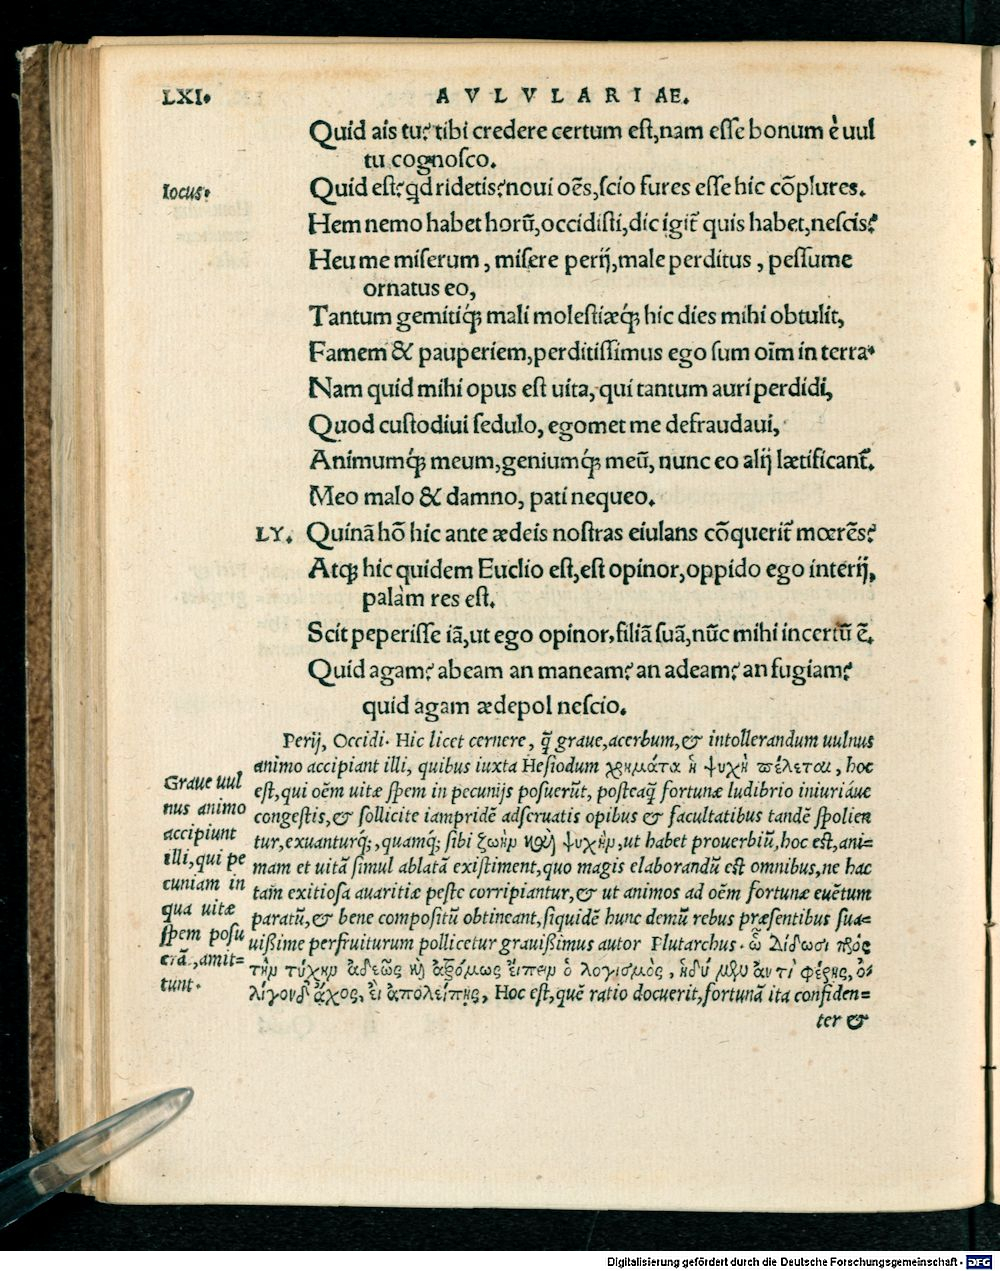 LXI. AVLVLARIAE.
Quid ais tu? tibi credere certum est, nam esse bonum è uul
tu cognosco.
Iocus. Quid est? qd ridetis? noui oẽs, scio fures esse hic cõplures.
Hem nemo habet horũ, occidisti, dic igit̃ quis habet, nescis?
Heu me miserum, misere perij, male perditus, pessume
ornatus eo,
Tantum gemitiq́; mali molestiæq́; hic dies mihi obtulit,
Famem & pauperiem, perditissimus ego sum oĩm in terra.
Nam quid mihi opus est uita, qui tantum auri perdidi,
Quod custodiui sedulo, egomet me defraudaui,
Animumq́; meum, geniumq́; meũ, nunc eo alij lætificant̃.
Meo malo & damno, pati nequeo.
LY. Quinã hõ hic ante ædeis nostras eiulans cõquerit̃ mœrẽs?
Atq; hic quidem Euclio est, est opinor, oppido ego interij,
palàm res est.
Scit peperisse iã, ut ego opinor, filiã suã, nũc mihi incertũ ẽ.
Quid agam? abeam an maneam? an adeam? an fugiam?
quid agam ædepol nescio.
Perij, Occidi. Hic licet cernere, q̃ graue, acerbum, & intollerandum uulnus
animo accipiant illi, quibus iuxta Hesiodum χρήματα ἡ ψυχὴ πέλεται, hoc
est, qui oẽm uitæ spem in pecunijs posuerũt, posteaq̃ fortunæ ludibrio iniuriáue
congestis, & sollicite iampridẽ adseruatis opibus & facultatibus tandẽ spolien
tur, exuanturq́;, quamq́; sibi ζωὴν καὶ ψυχὴν, ut habet prouerbiũ, hoc est, ani=
mam et uitã simul ablatã existiment, quo magis elaborandũ est omnibus, ne hac
tam̃ exitiosa auaritiæ peste corripiantur, & ut animos ad oẽm fortunæ euẽtum
paratũ, & bene compositũ obtineant, siquidẽ hunc demũ rebus præsentibus sua=
uißime perfruiturum pollicetur grauißimus autor Plutarchus. ᾧ δίδωσι πρός
τὴν τύχην ἀδεῶς καὶ ἀτρόμως εἰπεῖν ὁ λογισμὸς, ἡδύ μὲν ἄν τί φέρῃς, ὀ
λίγον δ' ἄχος, εἰ ἀπολείπῃς, Hoc est, quẽ ratio docuerit, fortunã ita confiden=
ter &
Graue uul
nus animo
accipiunt
illi, qui pe
cuniam in
qua uitæ
spem posu
erã., amit=
tunt.
Digitalisierung gefördert durch die Deutsche Forschungsgemeinschaft - DFG